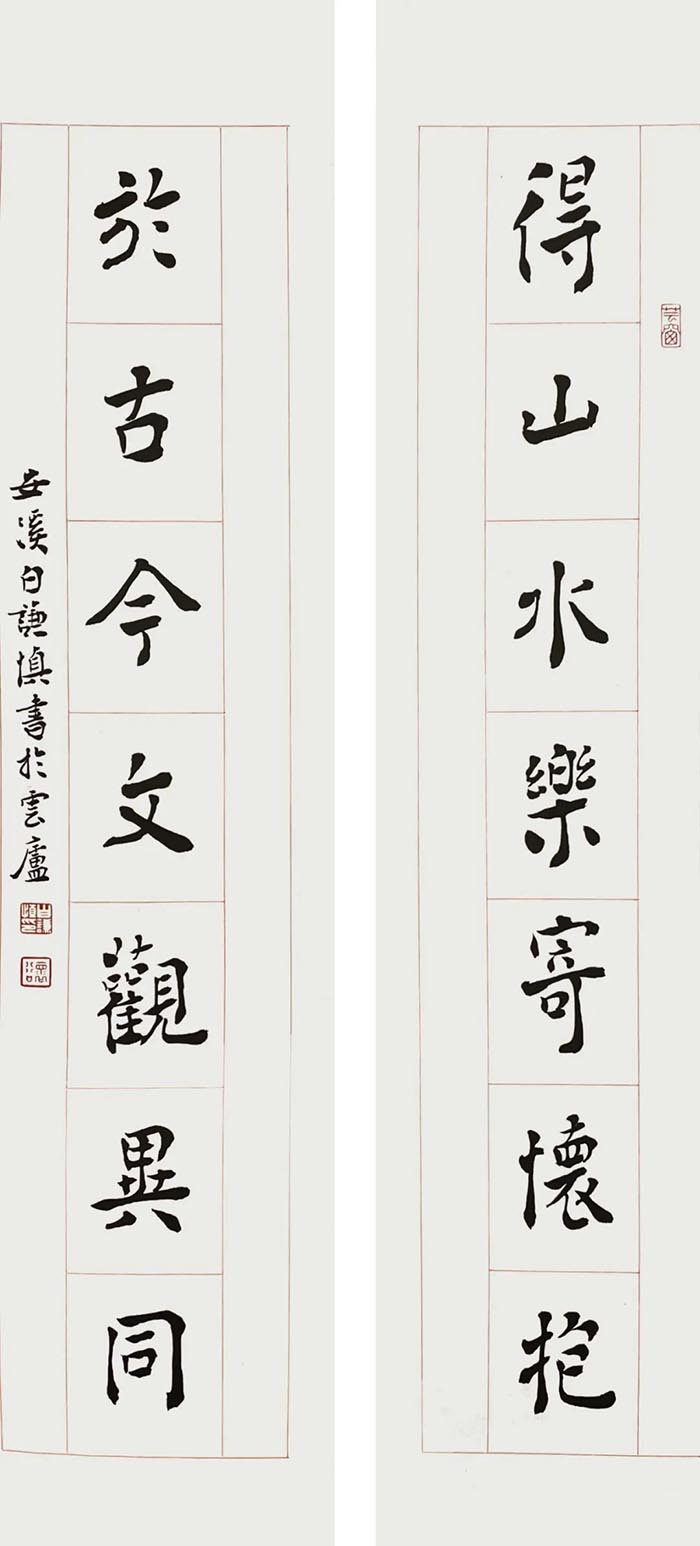 得山水樂寄懷抱
於古今文觀異同
安溪白謙慎書於雲廬
芸窗